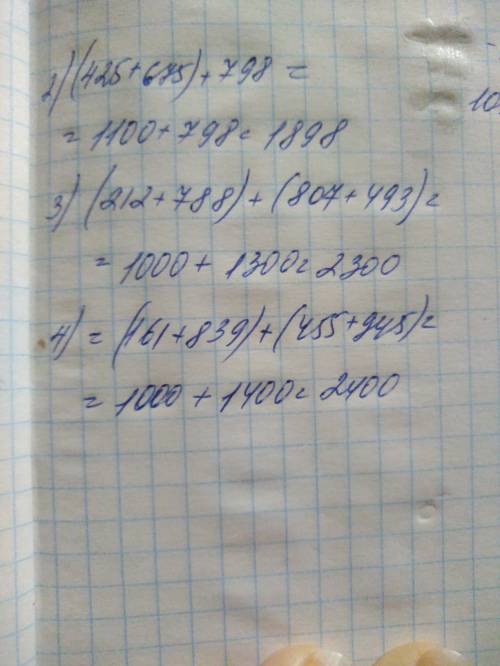 2) (425+675)+798 =
= 1100+798= 1898
3) (212+788)+(807+493)=
= 1000+ 1300= 2300
4) = (161+839)+(455+945)=
= 1000 + 1400= 2400
10